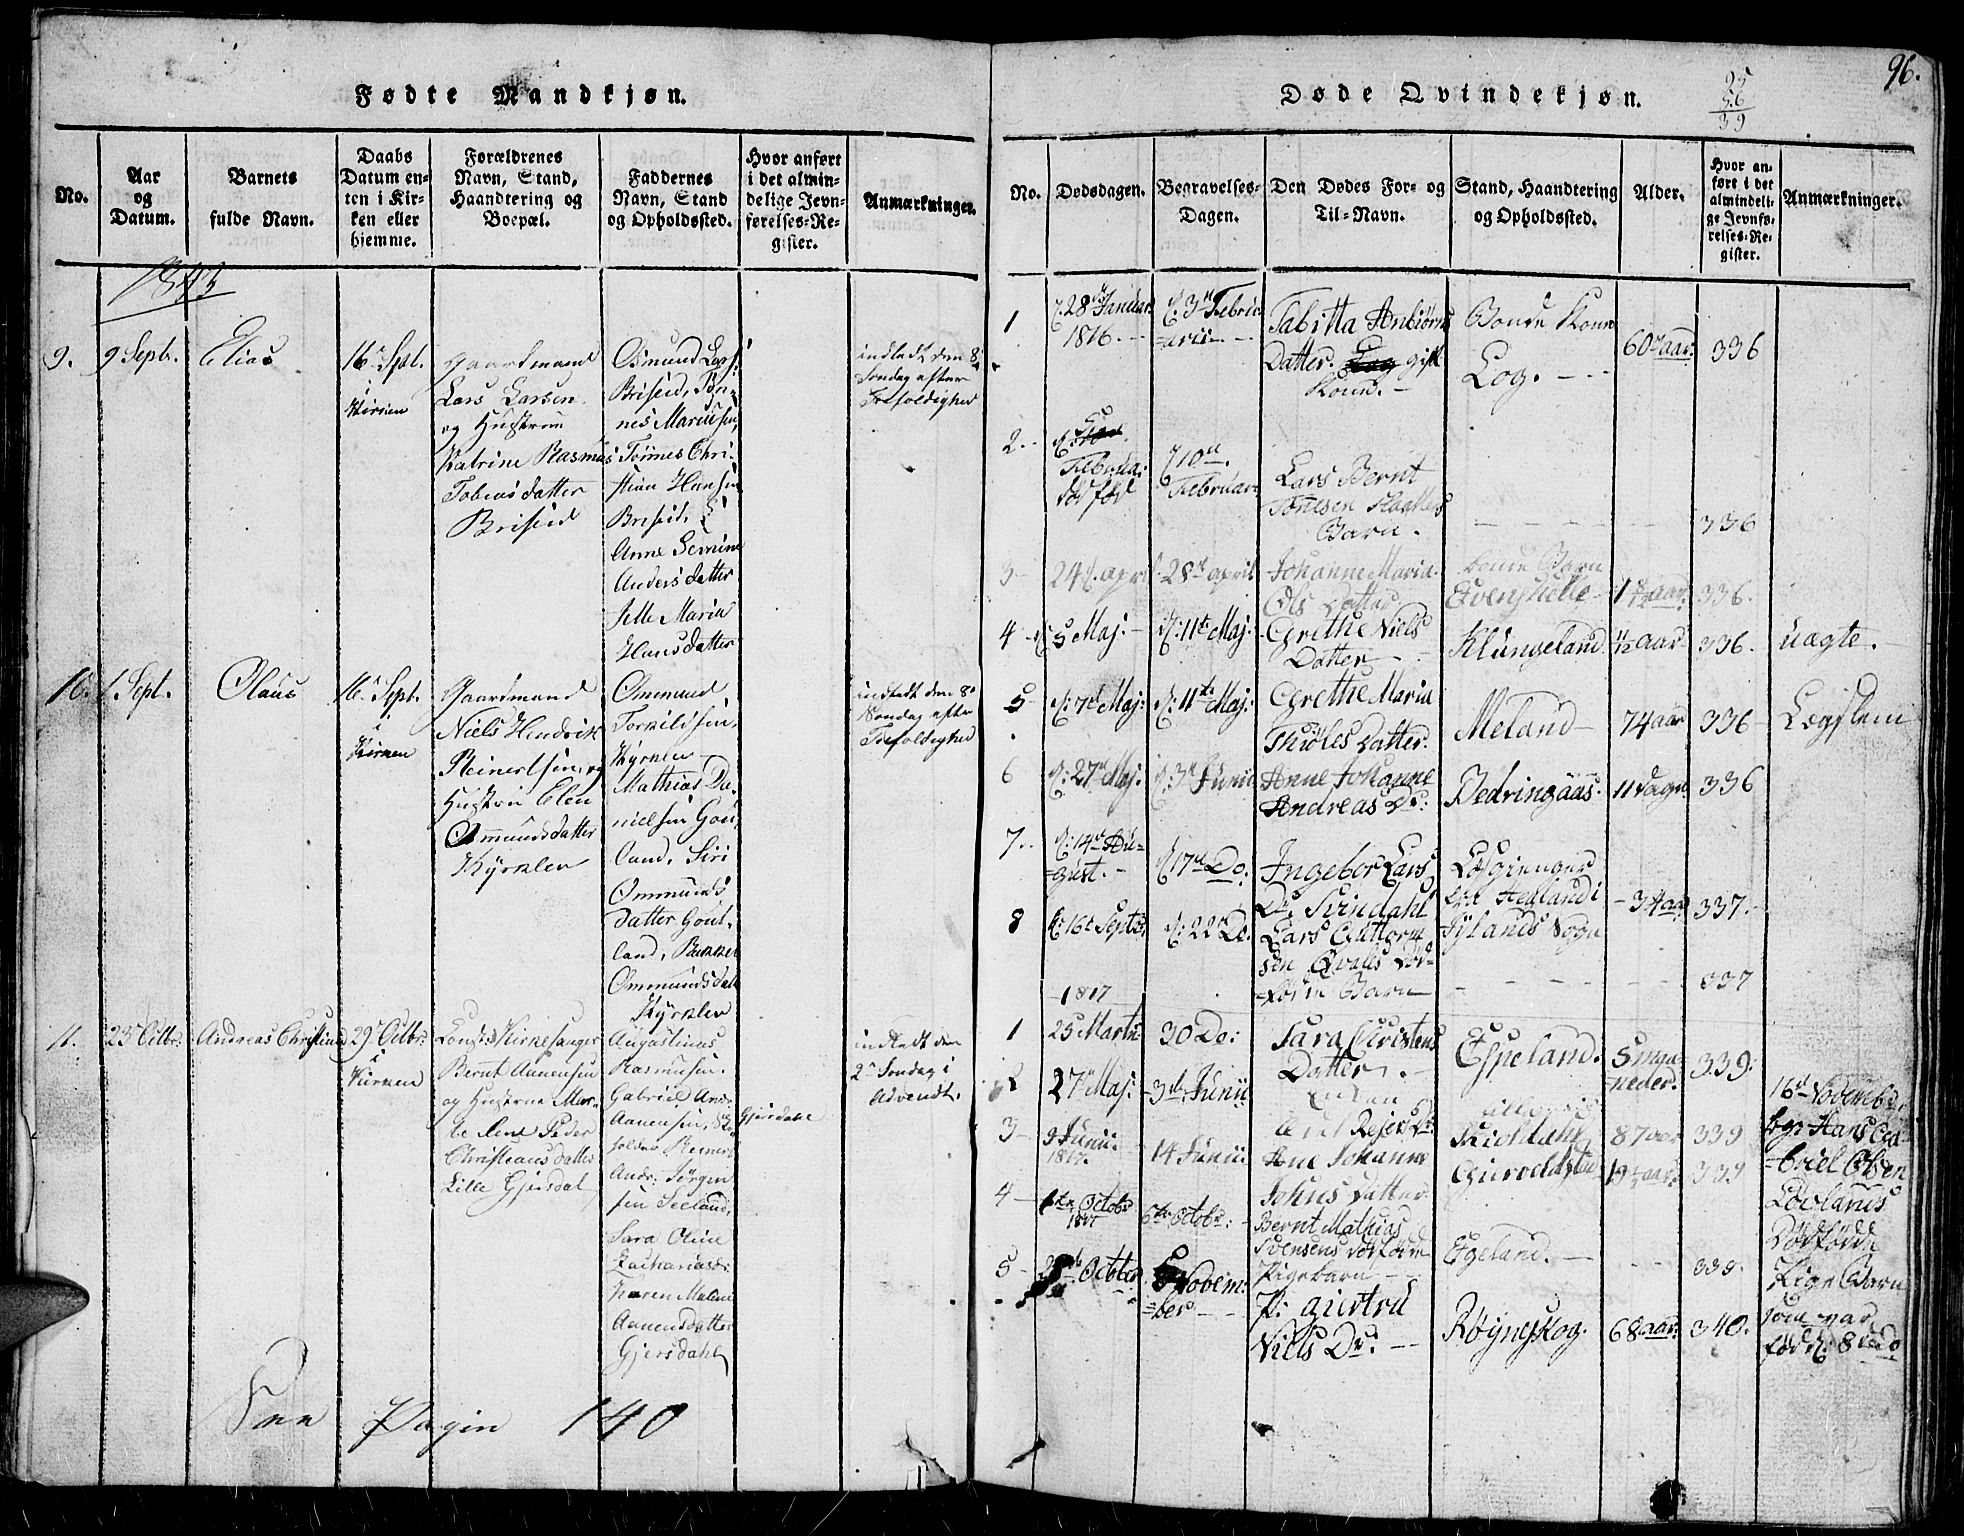 Fødte Mandkjøn.
No.
Aar
og
Datum.
Barnets
fulde Navn.
Daabs
Datum en-
ten i Kir-
ken eller
hjemme.
Forældrenes
Navn, Stand,
Haandtering og
Boepæl.
Faddernes
Navn, Stand
og Opholdssted.
Hvor anført
i det almin-
delige Jevn-
førelses-Re-
gister.
Anmærkninger.
1843
9.
9 Septr.
Elias
16 Sept.
i
Kirken
Gaardmand
Lars Larsen
og Hustrue
Katrine Rasmus
Tobias datter
Briseid
Osmund Lars:
Briseid, Tøn-
nes Mariussen,
Tønnes Chri-
stian Hansen
Briseid,
Anne Semine
Anders datter
Jelle Maria
Hansdatter
indledt den 8
Søndag efter
Trefoldighed
10.
1 Sept.
Olaus
16 Sept.
i
Kirken
Gaardmand
Niels Hendrik
Reinertsen, og
Hustrue Elen
Ommundsdatter
Kyrklev
Ommund
Torkildsen,
Kyrklev
Mathias Da-
nielsen Gou-
land, Siri
Ommunds
datter Gout-
land,
Ommundsdatt
Kyrklev
indledt den 8
Søndag efter
Trefoldighed
11.
23 Octbr.
Andreas Christian
29 Octbr.
i
Kirken
Kirkesanger
Bernt Aanensen
og Hustrue Mar-
the Lene Peder
Christians datter
Lille Gjersdal
Augustinus
Rasmusen.
Gabriel And:
Aanensen,
Reinert
Andr: Jørgen
sen Seeland,
Sara Oline
Zachariasdr
Karen Malene
Aanensdatter
Gjersdahl
Gjersdahl
indledt den
2 Søndag i
Advendt.
See Pagin 140
96.
25
56
39
Døde Qvindekjøn.
No.
Dødsdagen.
Begravelses-
Dagen.
Den Dødes For- og
Til-Navn.
Stand, Haandtering
og Opholdssted.
Alder.
Hvor an-
ført i det
almindeli-
ge Jevnfø-
relses-Re-
gister.
Anmærkninger.
1
d. 28 Januar
1816.
d: 3 Febru-
arii
Tabitta Anbiørns
Datter. gift
Koune.
Bonde Kone
Log.
60 aar:
336
2.
6
Februa:
død fød
d 10
Februar
Lars Bernt
Tønesen
Barn.
336
3
24 d. april
28 april
Johanne Maria
Ols Datter
Barn
1 aar.
336.
4
d 5 Maj:
d: 11te Maj:
Grethe Niels
Datter
Klungeland
11/12 aar
336.
uægte.
5
d: 7 Maj:
d: 11te Maj:
Grethe Maria
Thiøles Datter.
Meland
74 aar
336
Lægslem
6
d: 27 Maj:
d: 3 Junii
Anne Johanne
Andreas Dr:
Bedringaas.
11 dage.
336
7.
d: 14 Au-
gust.
d 17 Do.
Ingebor Lars
Dr. Svindahl
Løsgienger
fra Hedland i
Fylands Sogn
34 aar
337.
8
d: 16 Septr.
d: 22 Do.
Lars Guttorm
sen Qvales død-
fødte Barn
337
1817
1
25 Martii
30 Do:
Sara Christens
Datter.
Espeland.
5 maa-
neder.
339:
2
27 Maj:
3de Junii
Enken
Rejers Dr.
Skioldahl
87 aar
339
3
9 Junii
1817.
14 Junii:
Ane Johanne
Johns datter.
Giervoldstad
19 aar.
339
4
1te October
1817
6te Octobr:
Bernt Mathias
Svensens dødfødte
Pigebarn
Egeland.
339.
5
October
Novem-
ber
P: Giertru
Niels Dr:
Røyneskog.
68 aar.
340.
16 November
bgr: Hans Ga-
briel Olsen
Lovlands
Dødfødde
Pige Barn
som var
fød d: 8 Do